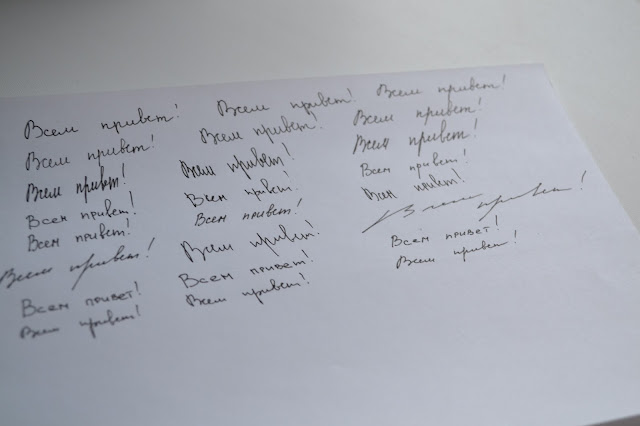 Всем привет! Всем привет! Всем привет!
Всем привет! Всем привет! Всем привет!
Всем привет! Всем привет! Всем привет!
Всем привет! Всем привет! Всем привет!
Всем привет! Всем привет! Всем привет!
Всем привет! Всем привет! Всем привет!
Всем привет! Всем привет! Всем привет!
Всем привет! Всем привет! Всем привет!